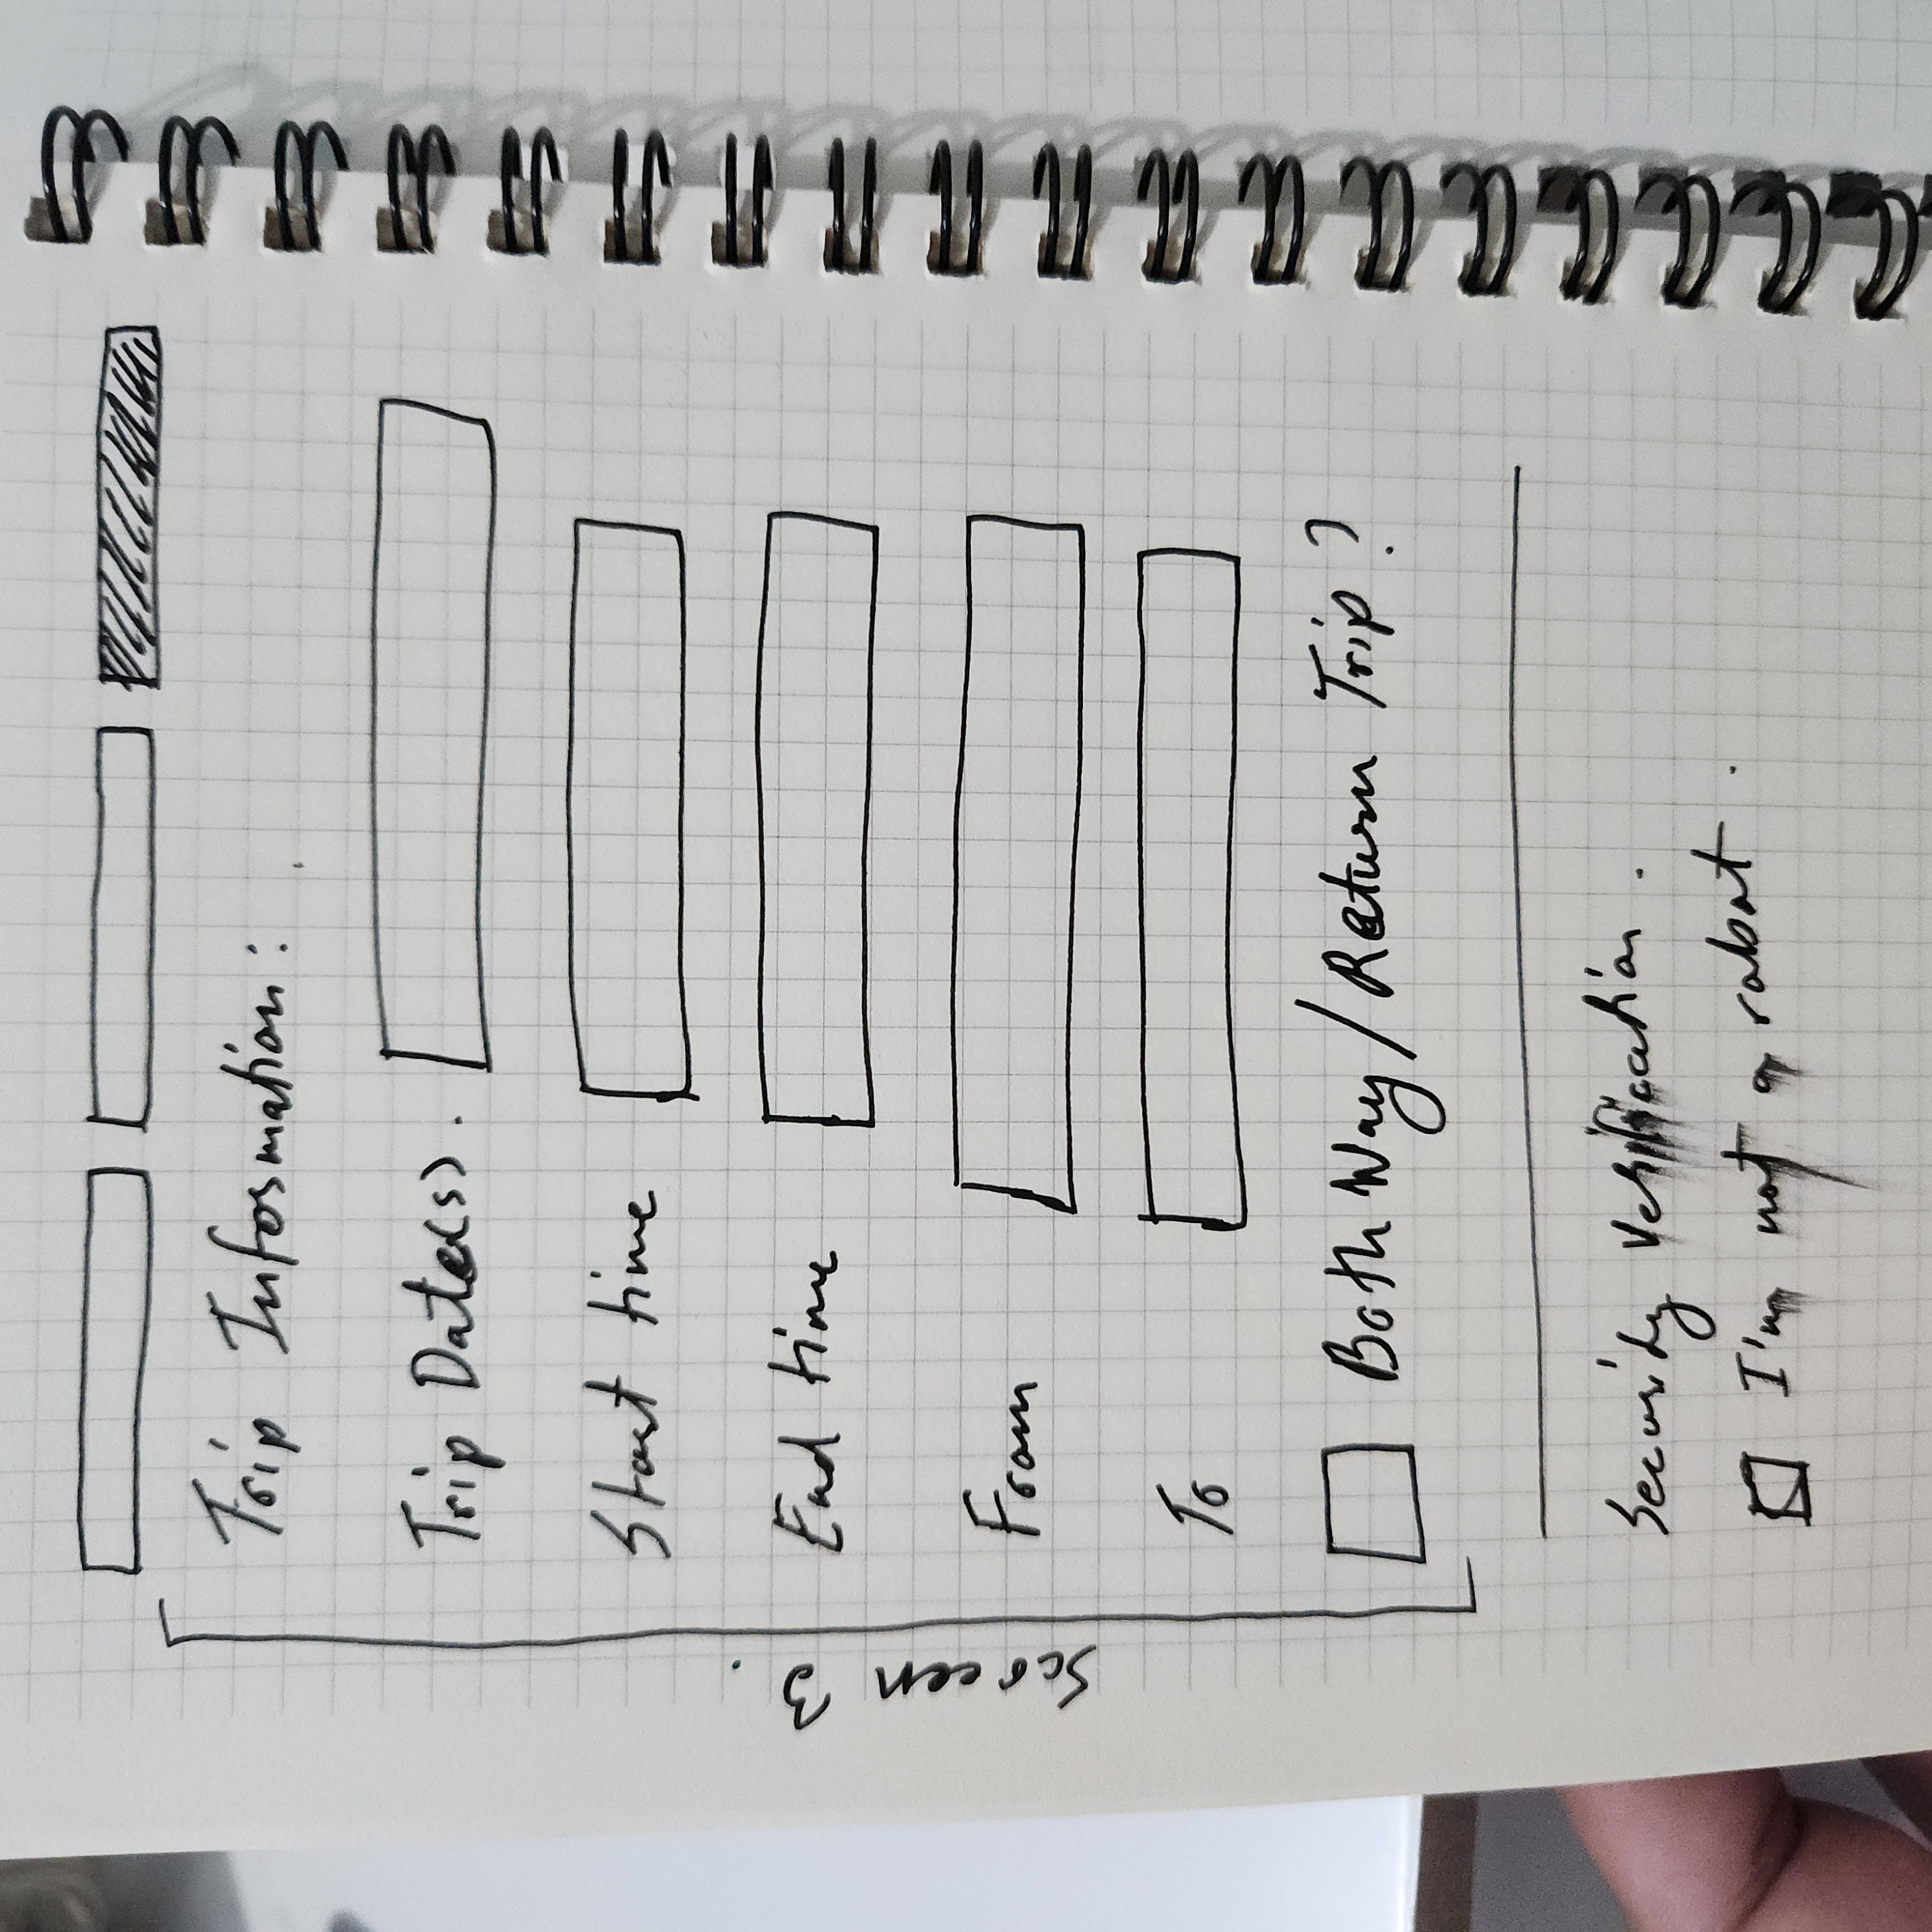 Trip Information:
Trip Date(s).
Start time
End time
From
To
Both Way/Return Trip?
Screen 3.
Security Verification.
I'm not a robot.